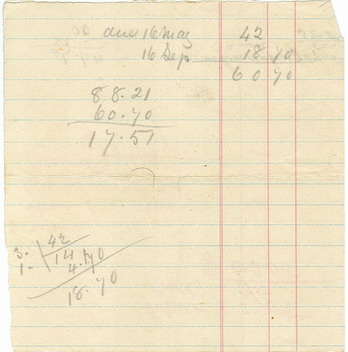 due 16 May 42
16 Sep 18 70
60 70
88.21
60.70
17.51
3. 42
1- 14.
4.70
18.70